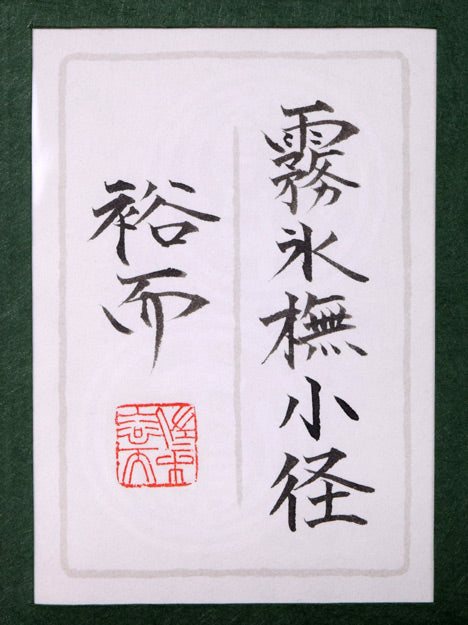 霧氷橅小径
裕而